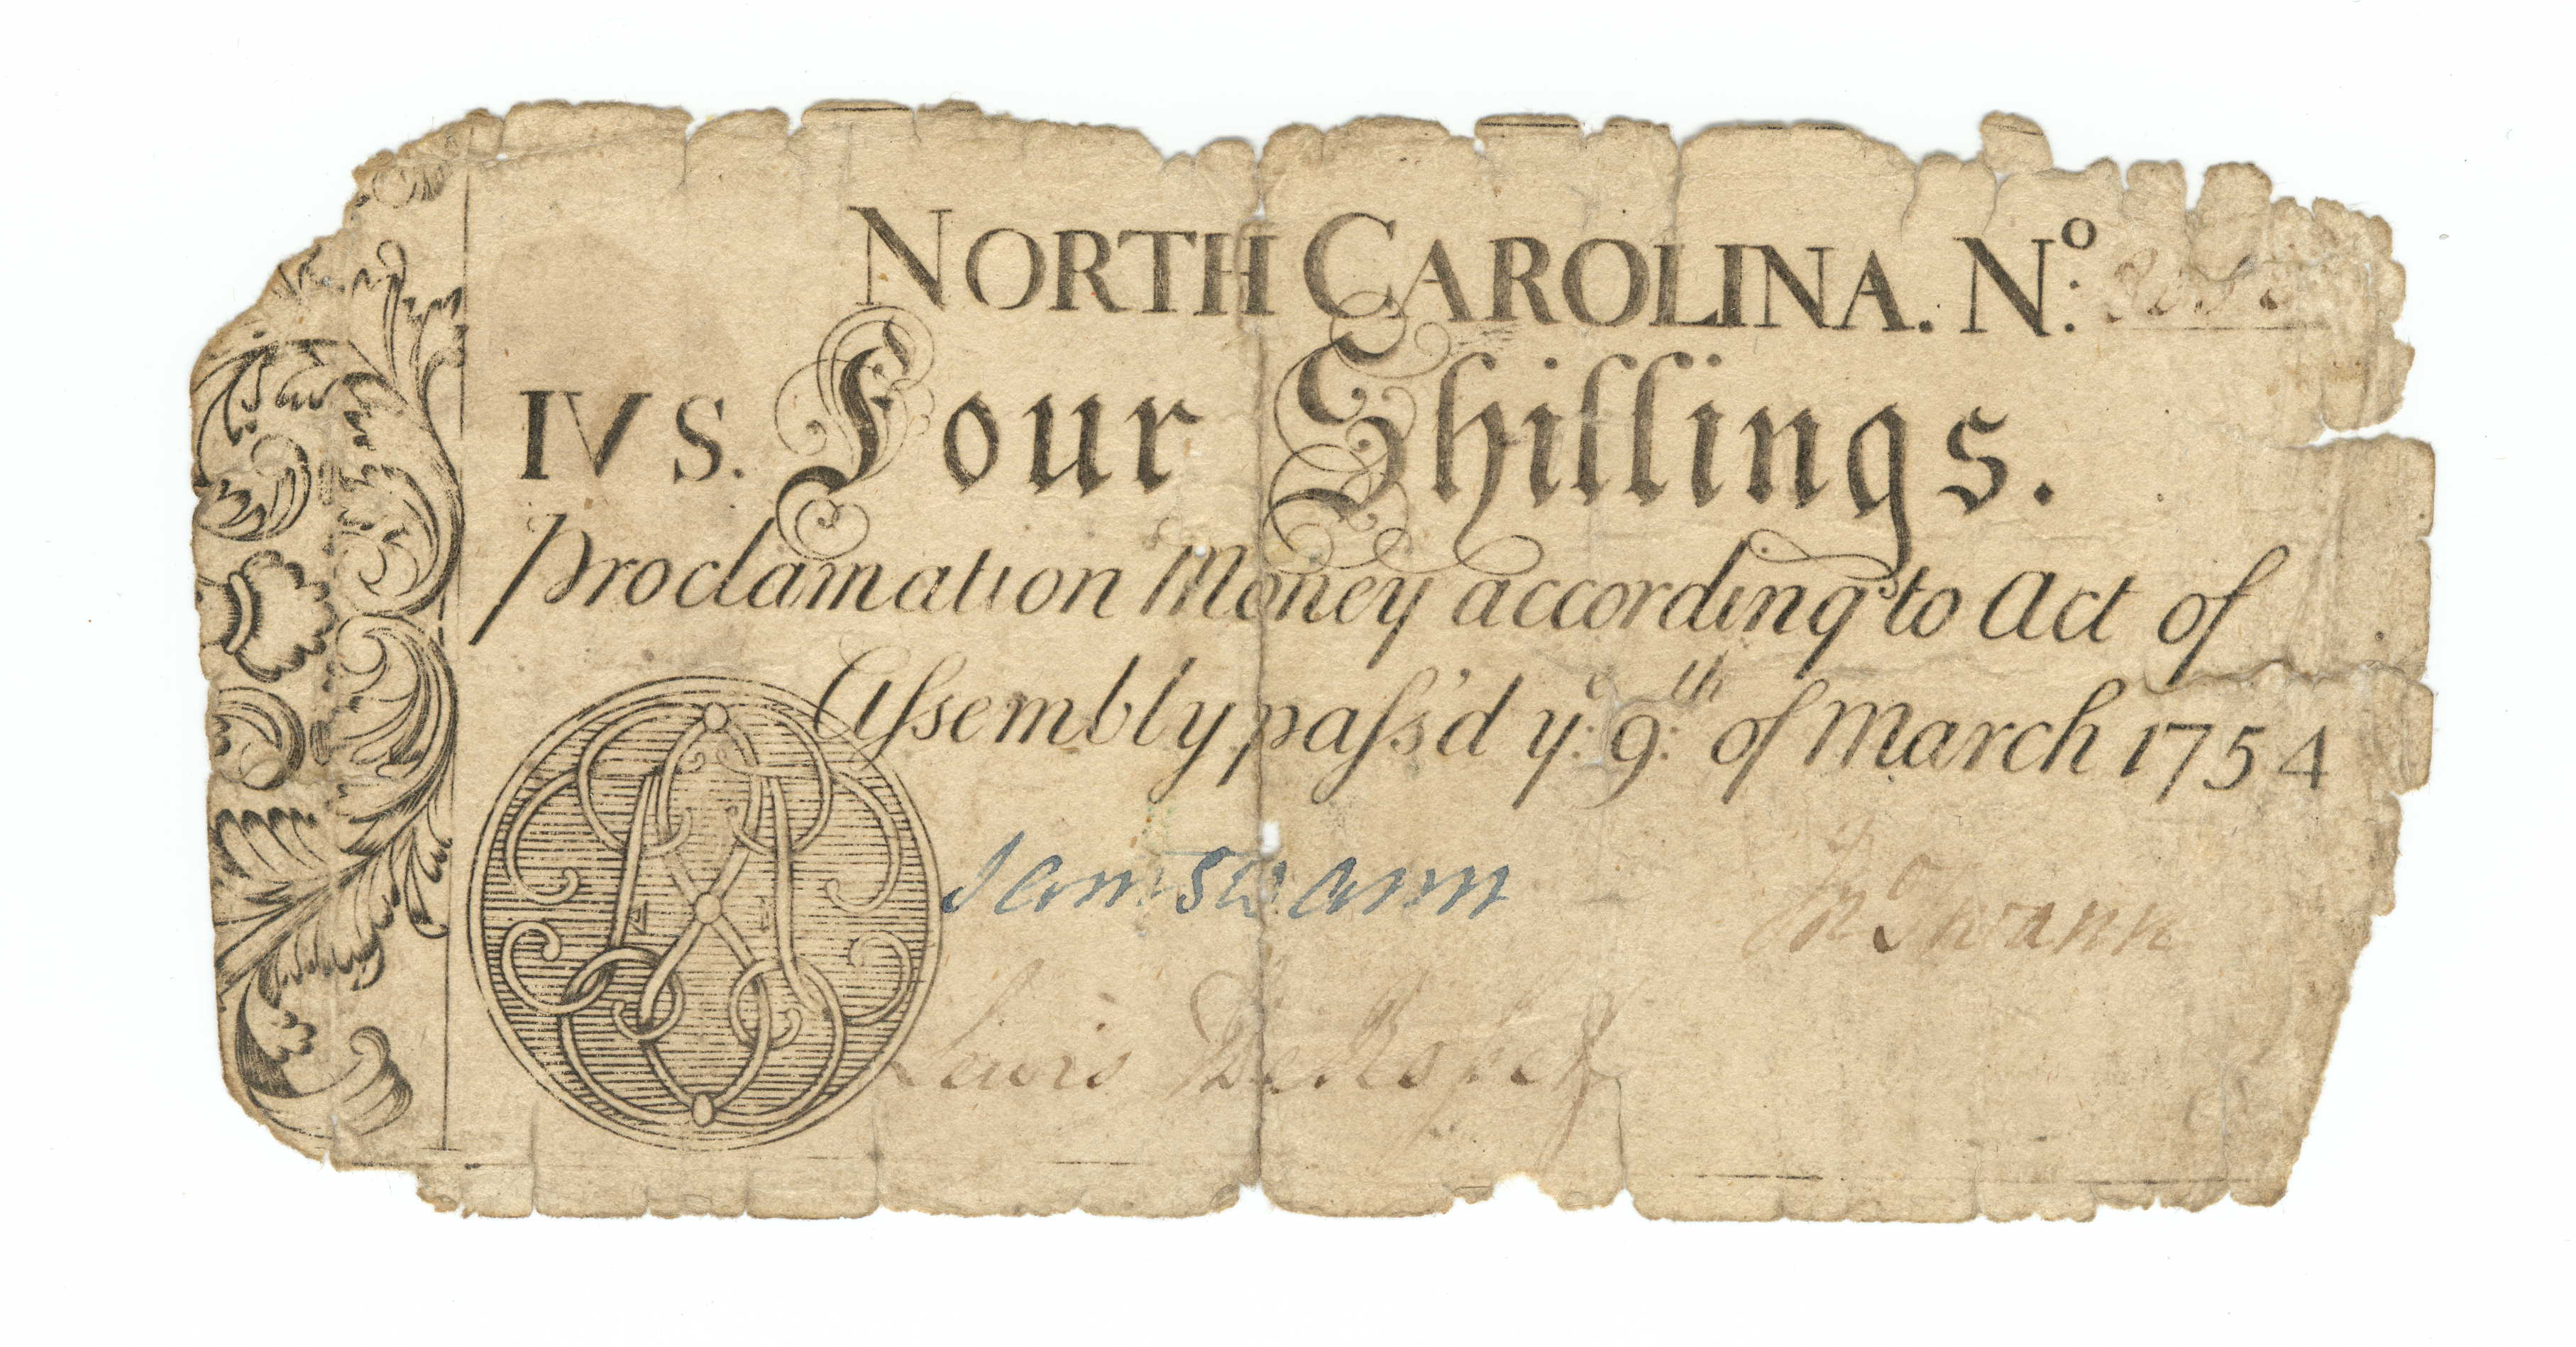 NORTH CAROLINA. Nº:
IV S. Four Shillings.
Proclamation Money according to Act of
Aſsembly paſs'd yᵉ: 9:ᵗʰ of March 1754
Sam Swann
Jnº Swann
Lewis DeRosset